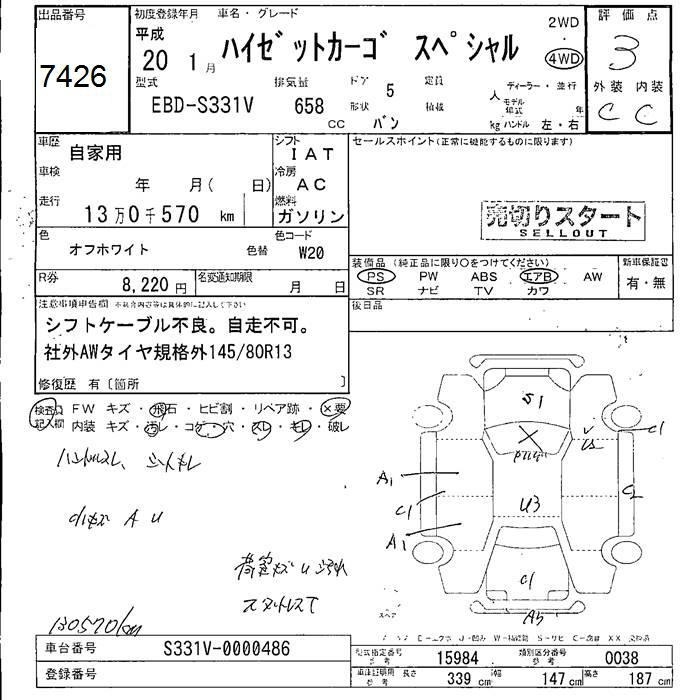 出品番号 初度登録年月 車名・グレード 2WD 評価点
7426 平成 20 1月 ハイゼットカーゴ スペシャル 4WD 3
型式 排気量 ドア 5 定員 人 ディーラー・並行 外装 内装
EBD-S331V 658 CC 形状 バン 積載 kg モデル年式 年 ハンドル 左・右 C C
車歴 自家用 シフト IAT セールスポイント(正常に機能するものに限ります)
車検 年 月( 日) 冷房 AC
走行 13万0千570 km 燃料 ガソリン 売切りスタート
SELLOUT
色 オフホワイト 色替 色コード W20
装備品(純正品に限り○をつけてください) 新車保証書
R券 8,220円 名変通知期限 月 日 PS PW ABS エアB AW 有・無
SR ナビ TV カワ
注意事項申告欄 後日品
シフトケーブル不良。自走不可。
社外AWタイヤ規格外145/80R13
修復歴 有〔箇所 〕
検査員記入欄 FW キズ・飛石・ヒビ割・リペア跡・×要
内装 キズ・汚レ・コゲ・穴・スレ・キレ・破レ
S1
C1
A1
C1 U3 C2
A1
A U
C1
スタットレスT
130570km スペア
車台番号 S331V-0000486 型式指定番号 参考 15984 類別区分番号 参考 0038
登録番号 車庫証明用 参考 長さ 339 cm 幅 147 cm 高さ 187 cm